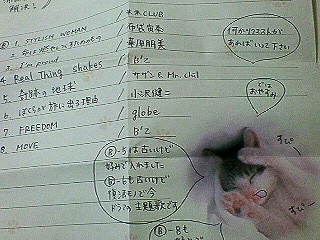 B
1. STYLISH WOMAN / 米米CLUB
布袋寅泰
3. I'm proud / 華原朋美
4. Real Thing Shakes / B'z
5. 奇跡の地球 / サザン & Mr.chil
6. ぼくらが旅に出る理由 / 小沢健二
globe
7 FREEDOM / B'z
8. MOVE
何かリクエストが
あればいって下さい
では
おやすみ
B-5は古いけど
好みで入れました
B-6も古いけど
復活モノで今
ドラマの主題歌です
すぴー
すぴー
B-8も